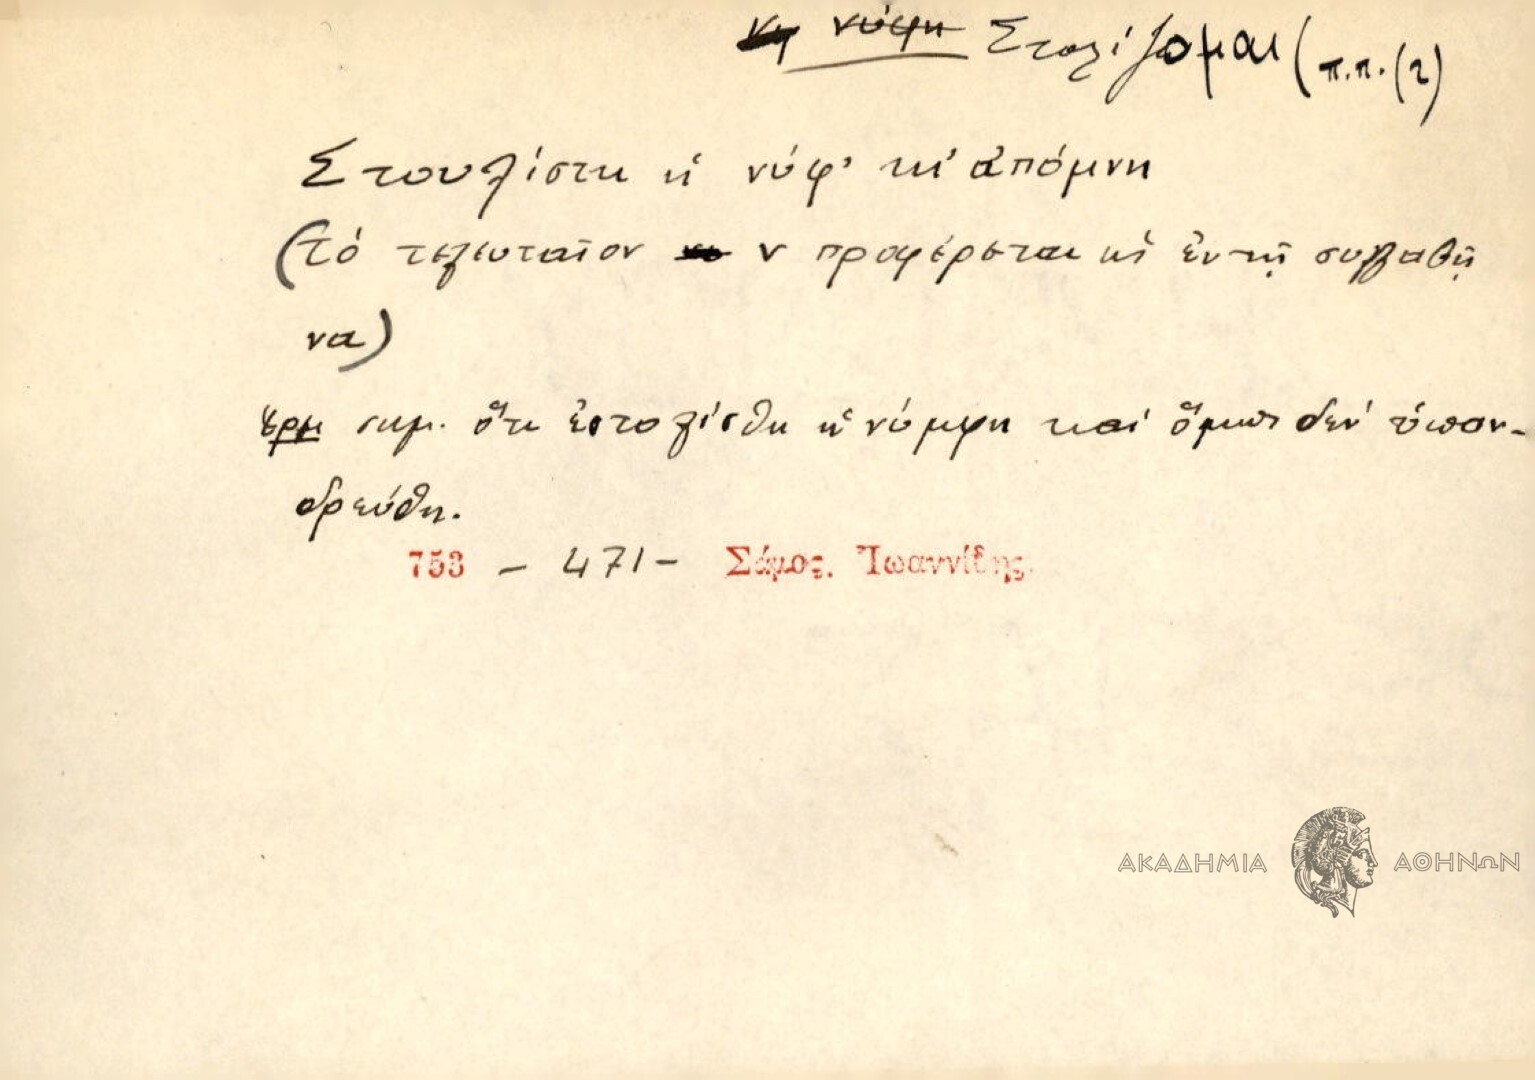 νύφη Στολίζομαι (π.π. (2)
Στουλίστη ἡ νύφ' κι' ἀπόμνη
(τό τελευταῖον ν προφέρεται ὡς ἐν τῇ συλλαβῇ
να)
ἑρμ σημ. ὅτι ἐστολίσθη ἡ νύμφη καί ὅμως δέν ὑπαν-
δρεύθη.
753 - 471 - Σάμος. Ἰωαννίδης.
ΑΚΑΔΗΜΙΑ ΑΘΗΝΩΝ